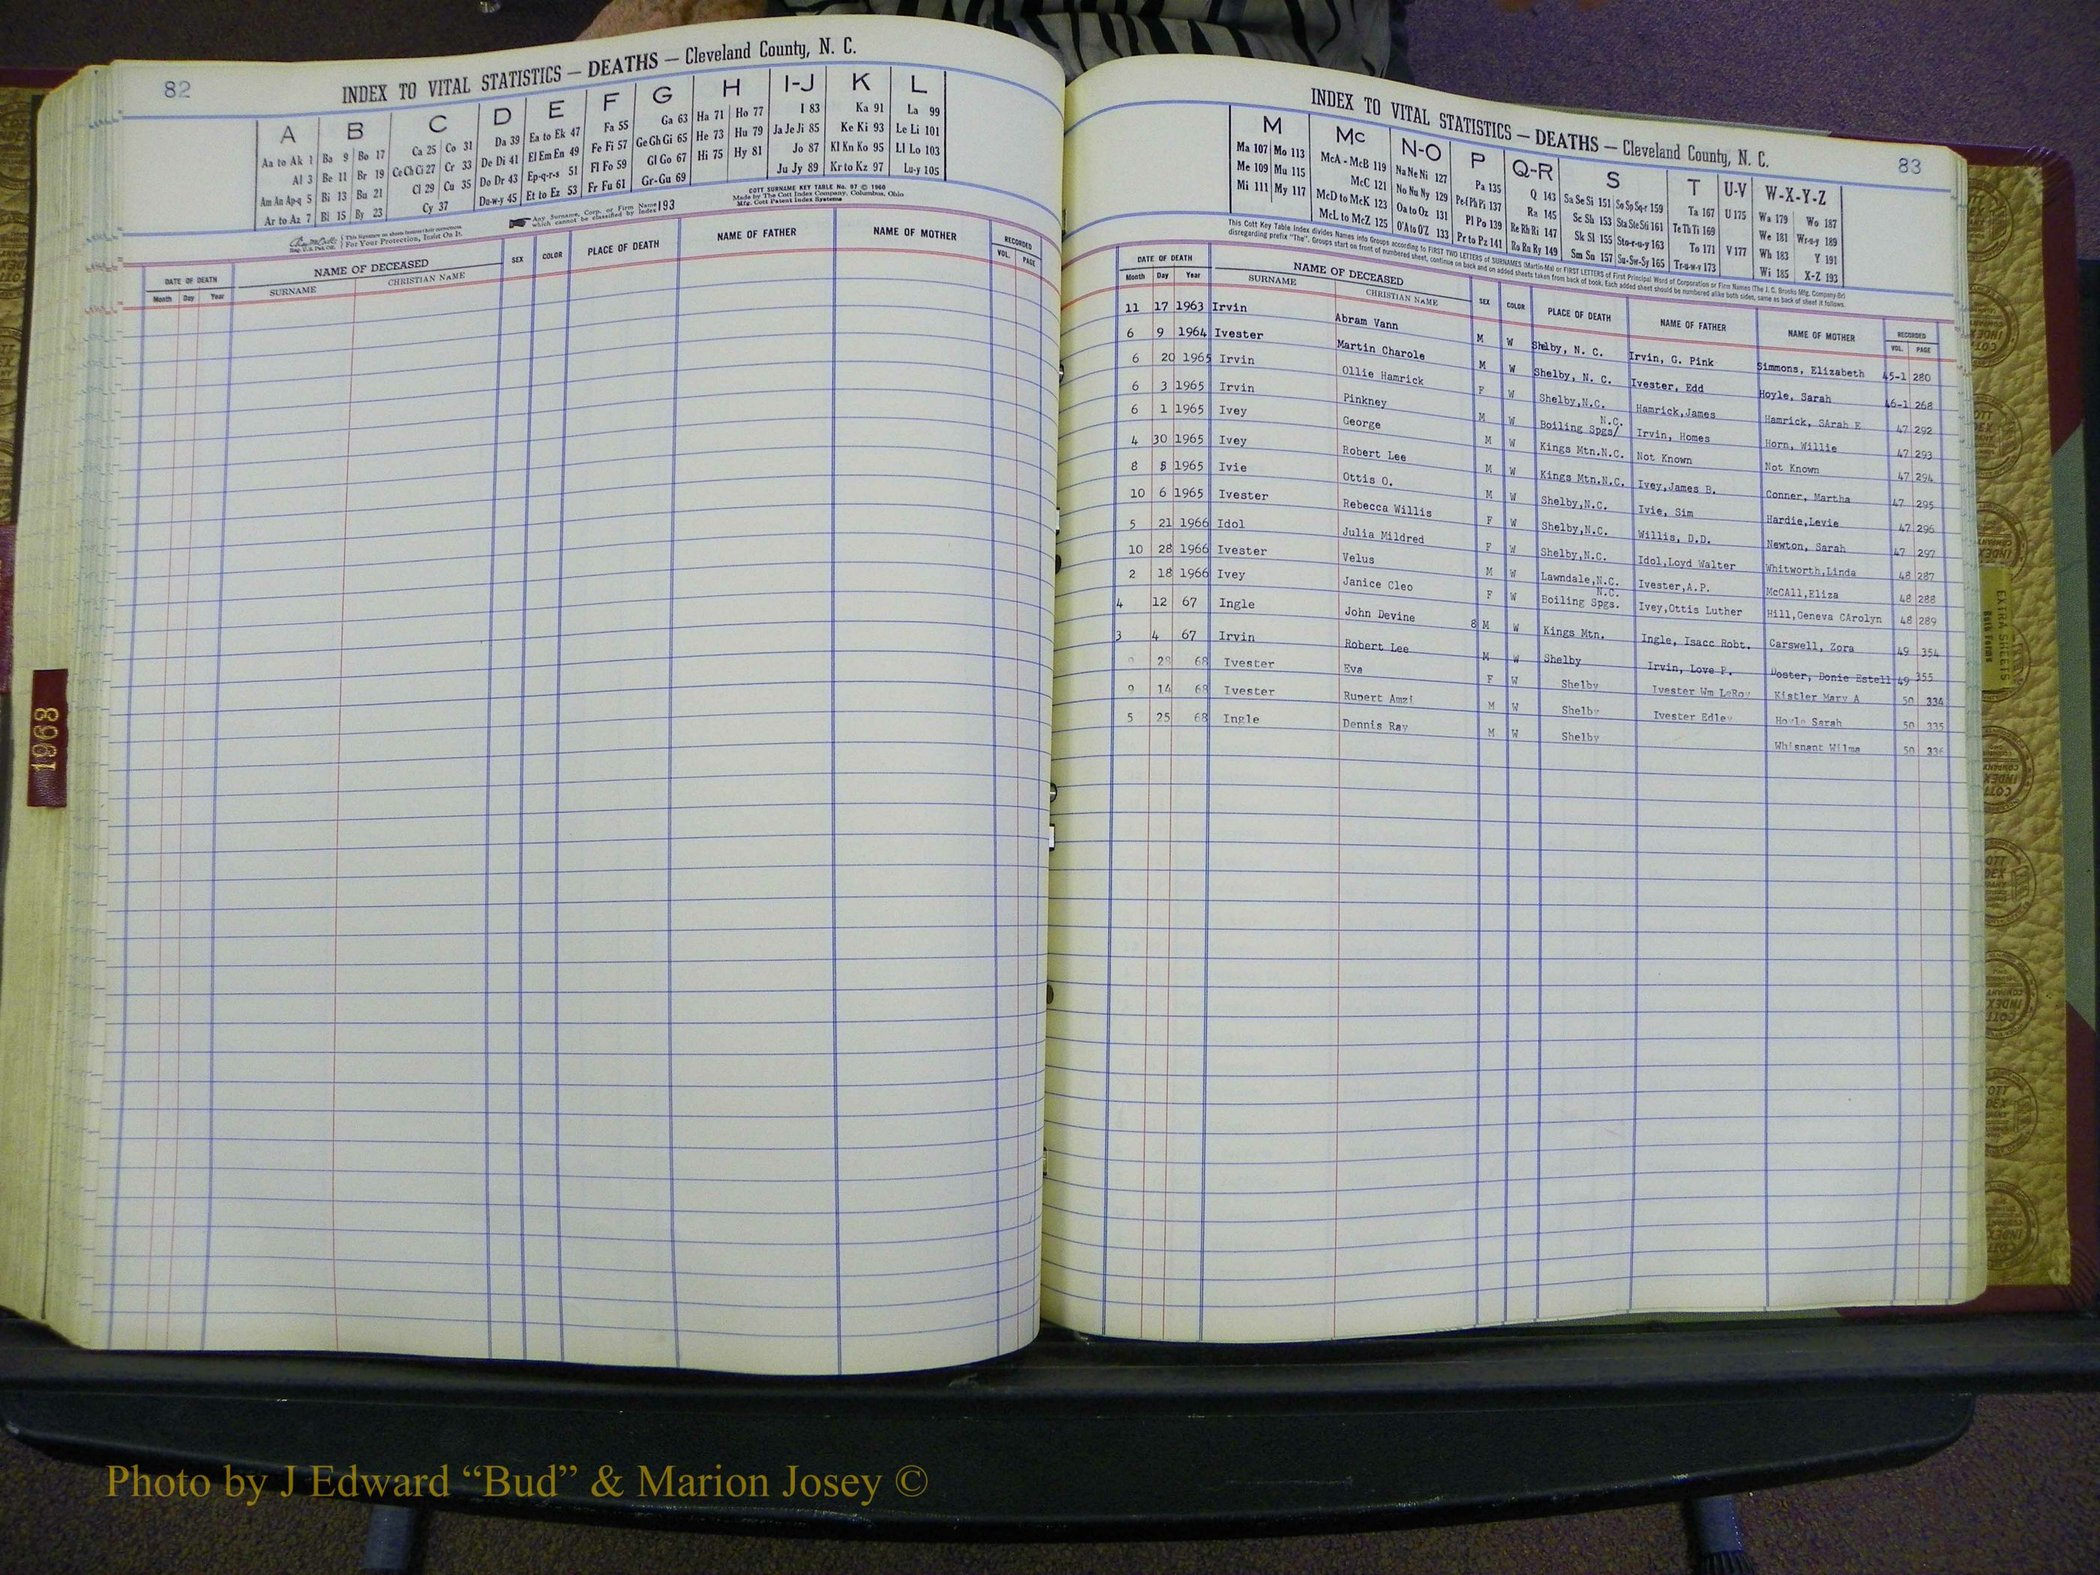 82
INDEX TO VITAL STATISTICS — DEATHS — Cleveland County, N. C.
A B C D E F G H I-J K L
Aa to Ak 1 Ba 9 Bo 17 Ca 25 Co 31 Da 39 Ea to Ek 47 Fa 55 Ga 63 Ha 71 Ho 77 I 83 Ka 91 La 99
Al 3 Be 11 Br 19 Ce Ch Ci 27 Cr 33 De Di 41 El Em En 49 Fe Fi 57 Ge Gh Gi 65 He 73 Hu 79 Ja Je Ji 85 Ke Ki 93 Le Li 101
Am An Ap-q 5 Bi 13 Bu 21 Cl 29 Cu 35 Do Dr 43 Ep-q-r-s 51 Fl Fo 59 Gl Go 67 Hi 75 Hy 81 Jo 87 Kl Kn Ko 95 Ll Lo 103
Ar to Az 7 Bl 15 By 23 Cy 37 Du-w-y 45 Et to Ez 53 Fr Fu 61 Gr-Gu 69 Ju Jy 89 Kr to Kz 97 Lu-y 105
COTT SURNAME KEY TABLE No. 97 © 1960
Made by The Cott Index Company, Columbus, Ohio
Mfg. Cott Patent Index Systems
Any Surname, Corp. or Firm Name which cannot be classified by Index 193
For Your Protection, Insist On It.
DATE OF DEATH NAME OF DECEASED SEX COLOR PLACE OF DEATH NAME OF FATHER NAME OF MOTHER RECORDED
Month Day Year SURNAME CHRISTIAN NAME VOL. PAGE
1968
INDEX TO VITAL STATISTICS — DEATHS — Cleveland County, N. C.
83
M Mc N-O P Q-R S T U-V W-X-Y-Z
Ma 107 Mo 113 McA - McB 119 Na Ne Ni 127 Pa 135 Q 143 Sa Se Si 151 So Sp Sq-r 159 Ta 167 U 175 Wa 179 Wo 187
Me 109 Mu 115 McC 121 No Nu Ny 129 Pe-f Ph Pi 137 Ra 145 Sc Sh 153 Sta Ste Sti 161 Te Th Ti 169 We 181 Wr-u-y 189
Mi 111 My 117 McD to McK 123 Oa to Oz 131 Pl Po 139 Re Rh Ri 147 Sk Sl 155 Sto-r-u-y 163 To 171 V 177 Wh 183 Y 191
McL to McZ 125 O'A to O'Z 133 Pr to Pz 141 Ro Ru Ry 149 Sm Sn 157 Su-Sw-Sy 165 Tr-u-w-y 173 Wi 185 X-Z 193
This Cott Key Table Index divides Names into Groups according to FIRST TWO LETTERS of SURNAMES (Martin-Ma) or FIRST LETTERS of First Principal Word of Corporation or Firm Names (The J. C. Brooks Mfg. Company-Br)
disregarding prefix "The". Groups start on front of numbered sheet, continue on back and on added sheets taken from back of book. Each added sheet should be numbered alike both sides, same as back of sheet it follows.
DATE OF DEATH NAME OF DECEASED SEX COLOR PLACE OF DEATH NAME OF FATHER NAME OF MOTHER RECORDED
Month Day Year SURNAME CHRISTIAN NAME VOL. PAGE
11 17 1963 Irvin Abram Vann M W Shelby, N. C. Irvin, G. Pink Simmons, Elizabeth 45-1 280
6 9 1964 Ivester Martin Charole M W Shelby, N. C. Ivester, Edd Hoyle, Sarah 46-1 268
6 20 1965 Irvin Ollie Hamrick F W Shelby,N.C. Hamrick,James Hamrick, SArah E 47 292
6 3 1965 Irvin Pinkney M W Boiling Spgs/ N.C. Irvin, Homes Horn, Willie 47 293
6 1 1965 Ivey George M W Kings Mtn.N.C. Not Known Not Known 47 294
4 30 1965 Ivey Robert Lee M W Kings Mtn.N.C. Ivey,James B. Conner, Martha 47 295
8 5 1965 Ivie Ottis O. M W Shelby,N.C. Ivie, Sim Hardie,Levie 47 296
10 6 1965 Ivester Rebecca Willis F W Shelby,N.C. Willis, D.D. Newton, Sarah 47 297
5 21 1966 Idol Julia Mildred F W Shelby,N.C. Idol,Loyd Walter Whitworth,Linda 48 287
10 28 1966 Ivester Velus M W Lawndale,N.C. Ivester,A.P. McCAll,Eliza 48 288
2 18 1966 Ivey Janice Cleo F W Boiling Spgs. N.C. Ivey,Ottis Luther Hill,Geneva CArolyn 48 289
4 12 67 Ingle John Devine 8 M W Kings Mtn. Ingle, Isacc Robt. Carswell, Zora 49 354
3 4 67 Irvin Robert Lee M W Shelby Irvin, Love P. Doster, Donie Estell 49 355
28 68 Ivester Eva F W Shelby Ivester Wm LeRoy Kistler Mary A 50 334
9 14 68 Ivester Rupert Amzi M W Shelby Ivester Edley Hoyle Sarah 50 335
5 25 68 Ingle Dennis Ray M W Shelby Whisnant Wilma 50 336
EXTRA SHEETS
Photo by J Edward “Bud” & Marion Josey ©